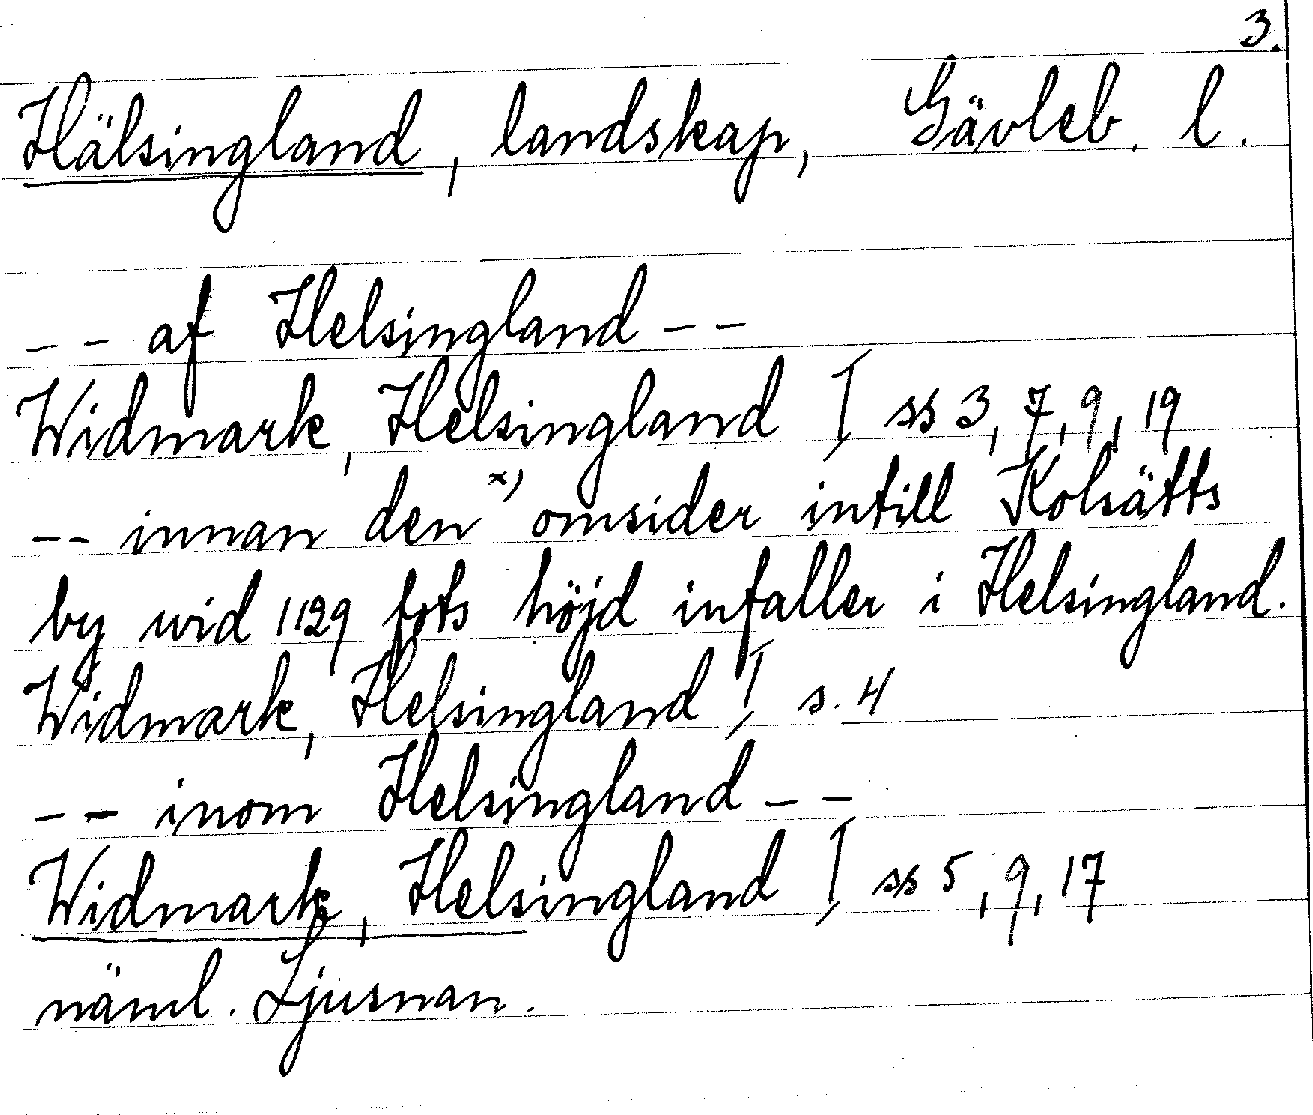 3.
Hälsingland, landskap, Gävleb. l.
-- af Helsingland --
Widmark, Helsingland I, ss 3, 7, 9, 19
-- innan den x) omsider intill Kolsätts
by wid 1129 fots höjd infaller i Helsingland.
Widmark, Helsingland I, s. 4
-- inom Helsingland --
Widmark, Helsingland I, ss 5, 9, 17
näml. Ljusnan.